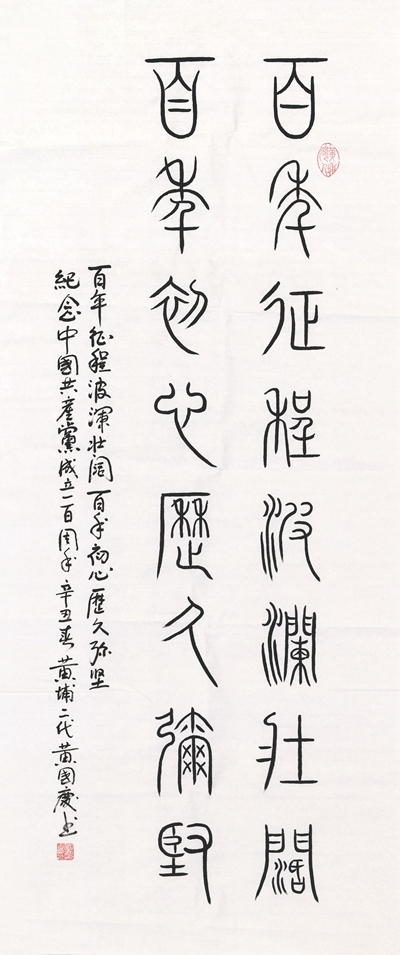 百年征程波瀾壯闊
百年初心歷久彌堅
百年征程波澜壮阔百年初心歷久弥坚
紀念中國共產黨成立一百周年辛丑春黄埔二代黄國慶书